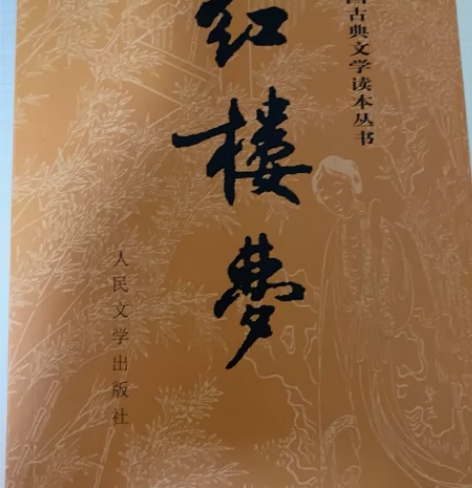 国古典文学读本丛书
红楼梦
人民文学出版社